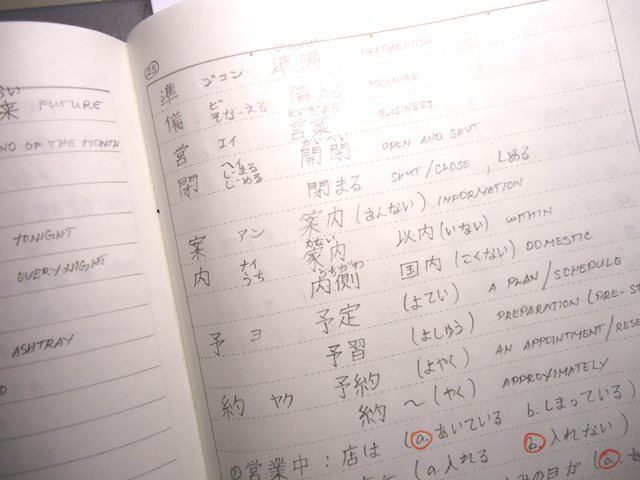 来 FUTURE
END OF THE MONTH
TONIGHT
EVERY NIGHT
ASHTRAY
23
準 ジュン 準備 PREPARATION
備 ビ そなーえる 備える PREPARE
営 エイ 営業 BUSINESS
閉 ヘイ しーまる しーめる 開閉 OPEN AND SHUT
閉まる SHUT/CLOSE, しめる
案 アン 案内 (あんない) INFORMATION
内 ナイ うち 家内 かない 以内 (いない) WITHIN
内側 うちがわ 国内 (こくない) DOMESTIC
予 ヨ 予定 (よてい) A PLAN/SCHEDULE
予習 (よしゅう) PREPARATION
約 ヤク 予約 (よやく) AN APPOINTMENT
約〜 (やく) APPROXIMATELY
①営業中:店は (a. あいている b. しまっている)
(a. 入れる b. 入れない)